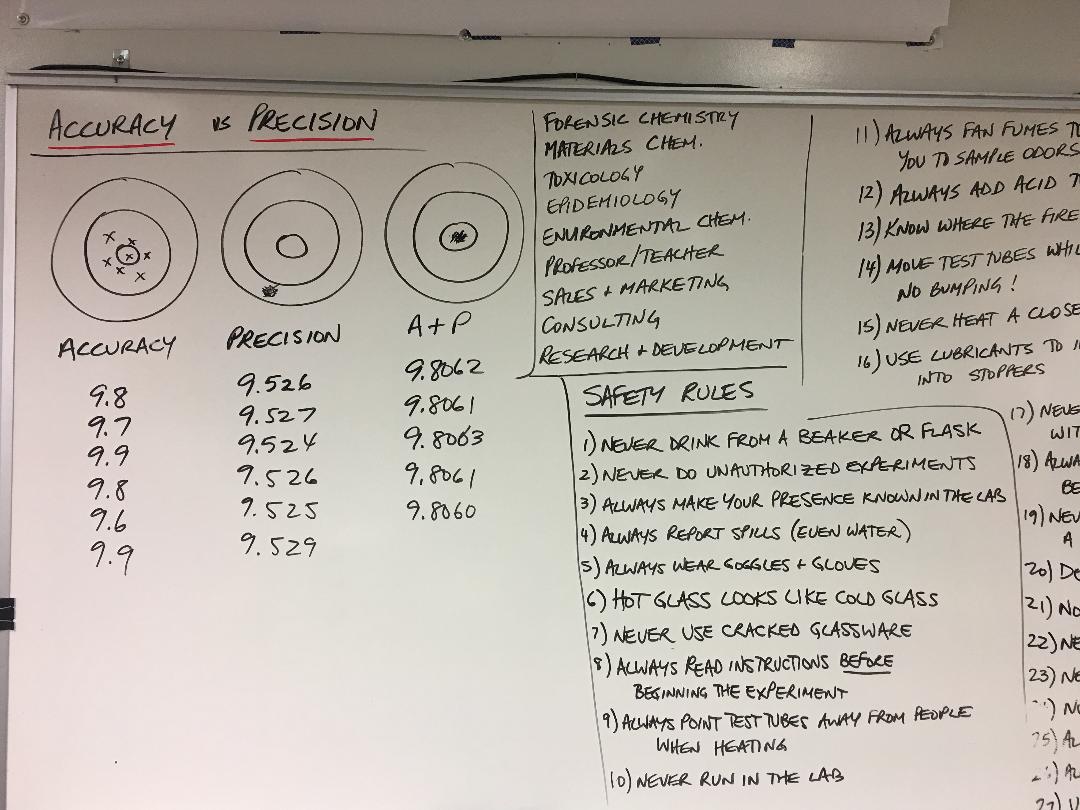 ACCURACY vs PRECISION
ACCURACY
9.8
9.7
9.9
9.8
9.6
9.9
PRECISION
9.526
9.527
9.524
9.526
9.525
9.529
A+P
9.8062
9.8061
9.8063
9.8061
9.8060
FORENSIC CHEMISTRY
MATERIALS CHEM.
TOXICOLOGY
EPIDEMIOLOGY
ENVIRONMENTAL CHEM.
PROFESSOR/TEACHER
SALES + MARKETING
CONSULTING
RESEARCH + DEVELOPMENT
SAFETY RULES
1) NEVER DRINK FROM A BEAKER OR FLASK
2) NEVER DO UNAUTHORIZED EXPERIMENTS
3) ALWAYS MAKE YOUR PRESENCE KNOWN IN THE LAB
4) ALWAYS REPORT SPILLS (EVEN WATER)
5) ALWAYS WEAR GOGGLES + GLOVES
6) HOT GLASS LOOKS LIKE COLD GLASS
7) NEVER USE CRACKED GLASSWARE
8) ALWAYS READ INSTRUCTIONS BEFORE
BEGINNING THE EXPERIMENT
9) ALWAYS POINT TEST TUBES AWAY FROM PEOPLE
WHEN HEATING
10) NEVER RUN IN THE LAB
11) ALWAYS FAN FUMES
YOU TO SAMPLE ODORS
12) ALWAYS ADD ACID
13) KNOW WHERE THE FIRE
14) MOVE TEST TUBES
NO BUMPING!
15) NEVER HEAT A
16) USE LUBRICANTS TO
INTO STOPPERS
17)
18)
19)
A
20)
21)
22)
23)
25)
27)